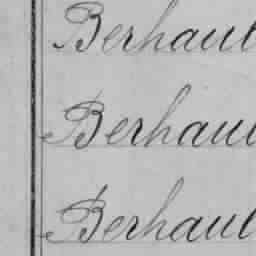 Berhaul
Berhaul
Berhaul